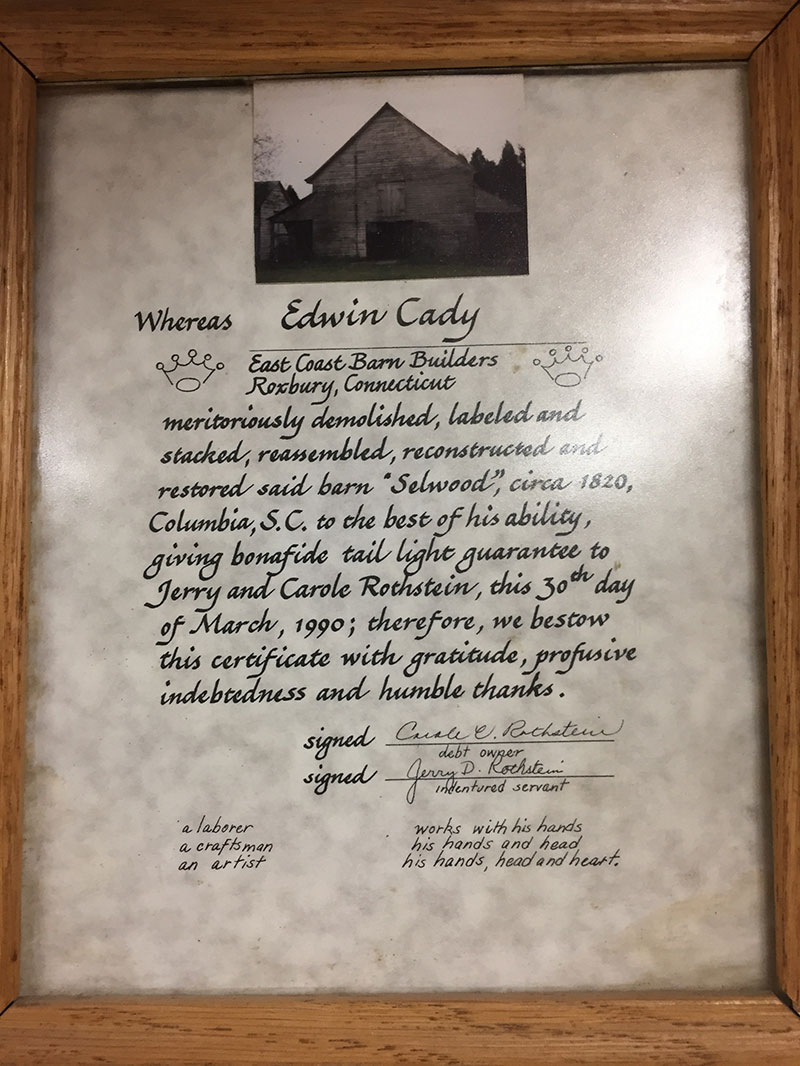 Whereas Edwin Cady
East Coast Barn Builders
Roxbury, Connecticut
meritoriously demolished, labeled and
stacked, reassembled, reconstructed and
restored said barn "Selwood", circa 1820,
Columbia, S.C. to the best of his ability,
giving bonafide tail light guarantee to
Jerry and Carole Rothstein, this 30th day
of March, 1990; therefore, we bestow
this certificate with gratitude, profusive
indebtedness and humble thanks.
signed Carole C. Rothstein
debt owner
signed Jerry D. Rothstein
indentured servant
a laborer works with his hands
a craftsman his hands and head
an artist his hands, head and heart.